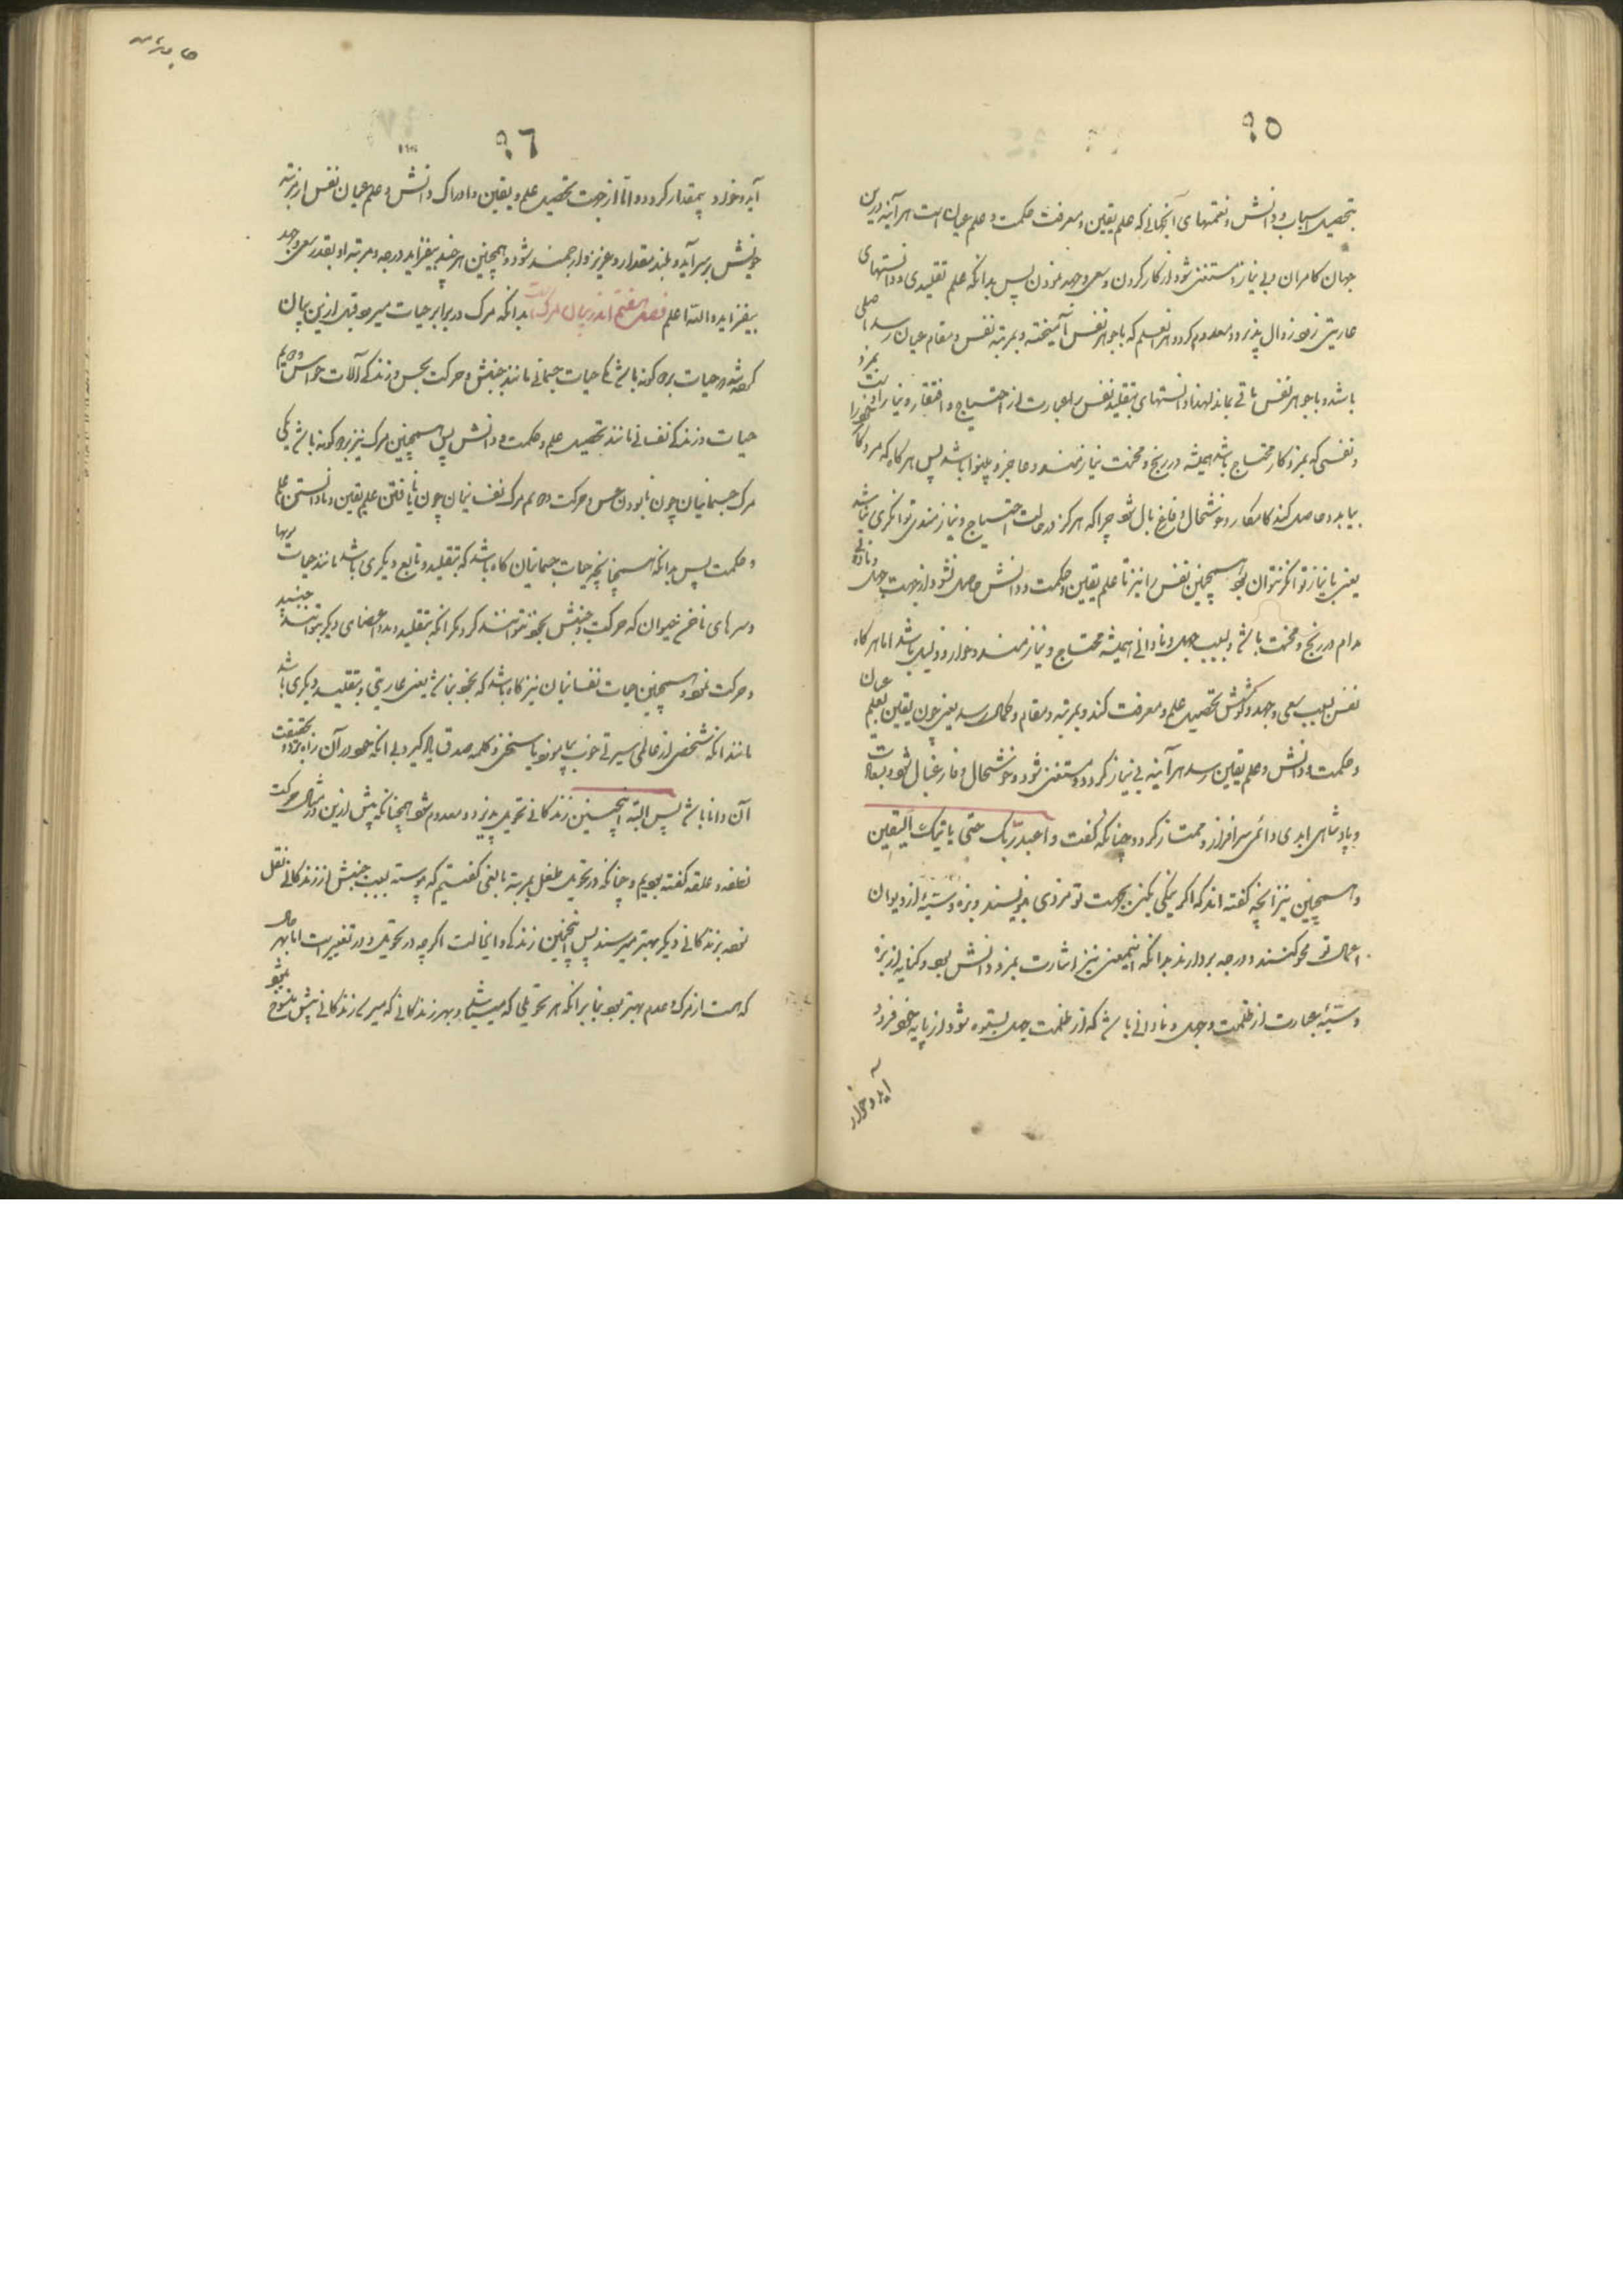 ٩٥
بتحصیل اسباب و دانش و نعمتهای آنجهانی که علم یقین و معرفت حکمت و علم عیان است هر آینه درین
جهان کامران و بی نیاز و مستغنی شود از کار کردن و سعی و جهد نمودن پس بدانکه علم تقلیدی و دانستهای
عاریتی زود زوال پذیرد و معدوم کردد و هر نفسیکه با جوهر نفس آمیخته و بمرتبه نفس و مقام عیان رسد اصلی
باشد و با جوهر نفس باقی بماند لهذا دانستهای بتقلید نفس را عبارت از احتیاج و افتقار و نیاز است
و نفسی که بمزد کار محتاج باشد همیشه در رنج و محنت نیازمند و عاجز و بینوا باشد پس هرکاه که مرد کار
بیابد و حاصل کند کامکار و خوشحال و فارغ بال شود چرا که هرکز در حالت احتیاج و نیازمندی توانکری نباشد
یعنی با نیاز توانکر نتوان بود همچنین نفس را نیز تا علم یقین و حکمت و دانش حاصل نشود از جهت جهل و نادانی
مدام در رنج و محنت باشد و بسبب جهل و نادانی همیشه محتاج و نیازمند و خوار و ذلیل باشد اما هرکاه
نفس بسبب سعی و جهد و کوشش تحصیل علم و معرفت کند و بمرتبه و مقام و کمال رسد یعنی چون یقین بعلم عیان
و حکمت و دانش و علم یقین رسد هر آینه بی نیاز کردد و مستغنی شود و خوشحال و فارغبال شود و بسعادت
و پادشاهی ابدی دائمی سرافراز و ممتاز کردد چنانکه کفت واعبد ربّک حتی یاتیک الیقین
و همچنین نیز آنچه کفته اند که اکر نیکی بکنی بجهت تو مزدی بنویسند و بزه و سیّئه از دیوان
اعمال تو محو کنند و درجه بردارند بدانکه اینمعنی نیز اشارت بمزد دانش بود و کنایه از بزه
و سیّئه عبارت از ظلمت و جهل و نادانی باشد که از ظلمت جهل بستوه شود از پایه خود فرود
آید و خوار
٩٦
آید و خوار و بیمقدار کردد و امّا از جهت تحصیل علم و یقین و ادراک دانش و علم عیان نفس از مرتبه
خویش بر سر آید و بلند مقدار و عزیز و ارجمند شود و همچنین هر چند بیفزاید درجه و مرتبه او بقدر سعی و جهد
بیفزاید و اللّه اعلم فصل هفتم اندر بیان مرک است بدانکه مرک در برابر حیات میبود قبل ازین بیان
کرده شد و حیات بر دو کونه باشد یکی حیات جسمانی مانند جنبش و حرکت بحس و زندکی آلات حواس دویم
حیات و زندکی نفسانی مانند تحصیل علم و حکمت و دانش پس همچنین مرک نیز بر دو کونه باشد یکی
مرک جسمانیان چون نابودن حس و حرکت دویم مرک نفسانیان چون نایافتن علم یقین و نادانستن علم
و حکمت پس بدانکه همچنانچه حیات جسمانیان کاه باشد که بتقلید و تابع دیکری باشد مانند حیات مویها
و سرهای ناخن حیوان که حرکت و جنبش بخود نتوانند کرد مکر آنکه بتقلید و مدد اعضای دیکر بتوانند جنبید
و حرکت نمود و همچنین حیات نفسانیان نیز کاه باشد که بخود نباشد یعنی عاریتی و بتقلید دیکری باشد
مانند آنکه شخصی از عالمی سیرتی خوب بیاموزد یا سخنی و کلمه صدق یاد کیرد بی آنکه خود در آن راه بحقیقت
آن دانا باشد پس البته اینچنین زندکانی تحویل پذیرد و معدوم شود همچنانکه پیش ازین در مثال حرکت
نطفه و علقه کفته بودیم و چنانکه در تحویل طفل بمرتبه بالغی کفتیم که پیوسته بسبب جنبش از زندکانی نقل
نموده بزندکانی دیکر بهتر میرسند پس اینچنین زندکی و اینحالت اکرچه در تحویل و در تغییر است اما بهر حال
که هست از مرک و عدم بهتر بود بنابر آنکه هر تحویلی که میباشد و بهر زندکانی که میرسد زندکانی پیش منسوخ میشود